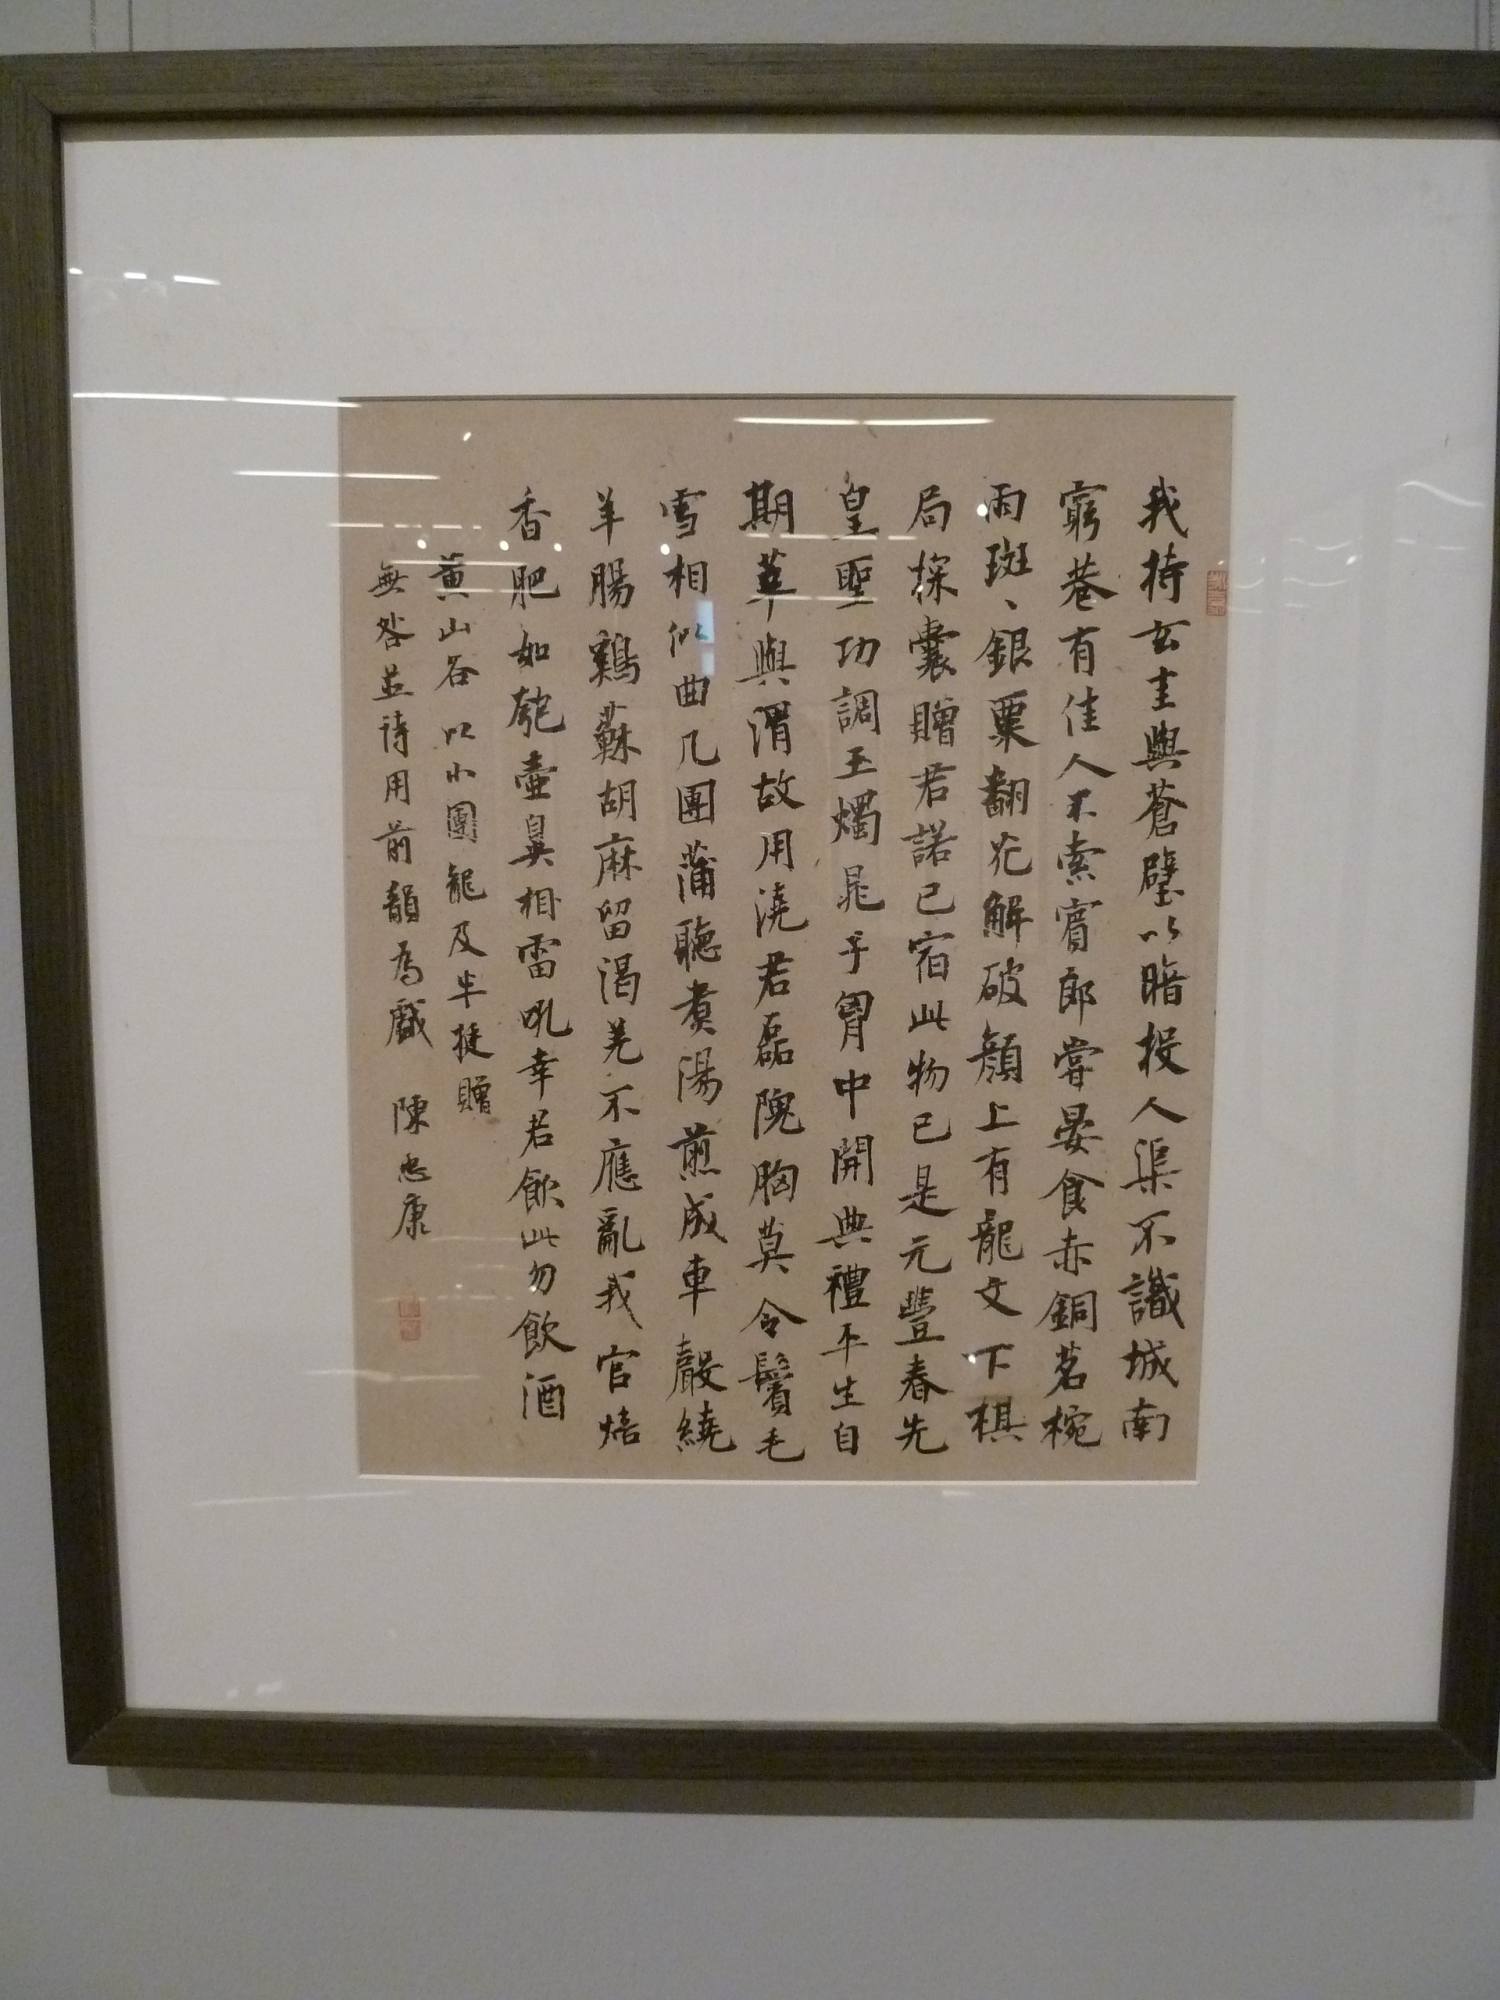 我持玄圭與蒼璧以暗投人渠不識城南
窮巷有佳人不索賓郎嘗晏食赤銅茗椀
雨斑、銀粟翻花解破顏上有龍文下棋
局探囊贈君諾已宿此物已是元豐春先
皇聖功調玉燭晁子胷中開典禮平生自
期莘與渭故用澆君磊隗胸莫令鬢毛
雪相似曲几團蒲聽煑湯煎成車聲繞
羊腸鷄蘇胡麻留渴羌不應亂我官焙
香肥如匏壺鼻相雷吼幸君飲此勿飲酒
黄山谷以小團龍及半挺贈
無咎並詩用前韻為戲 陳忠康